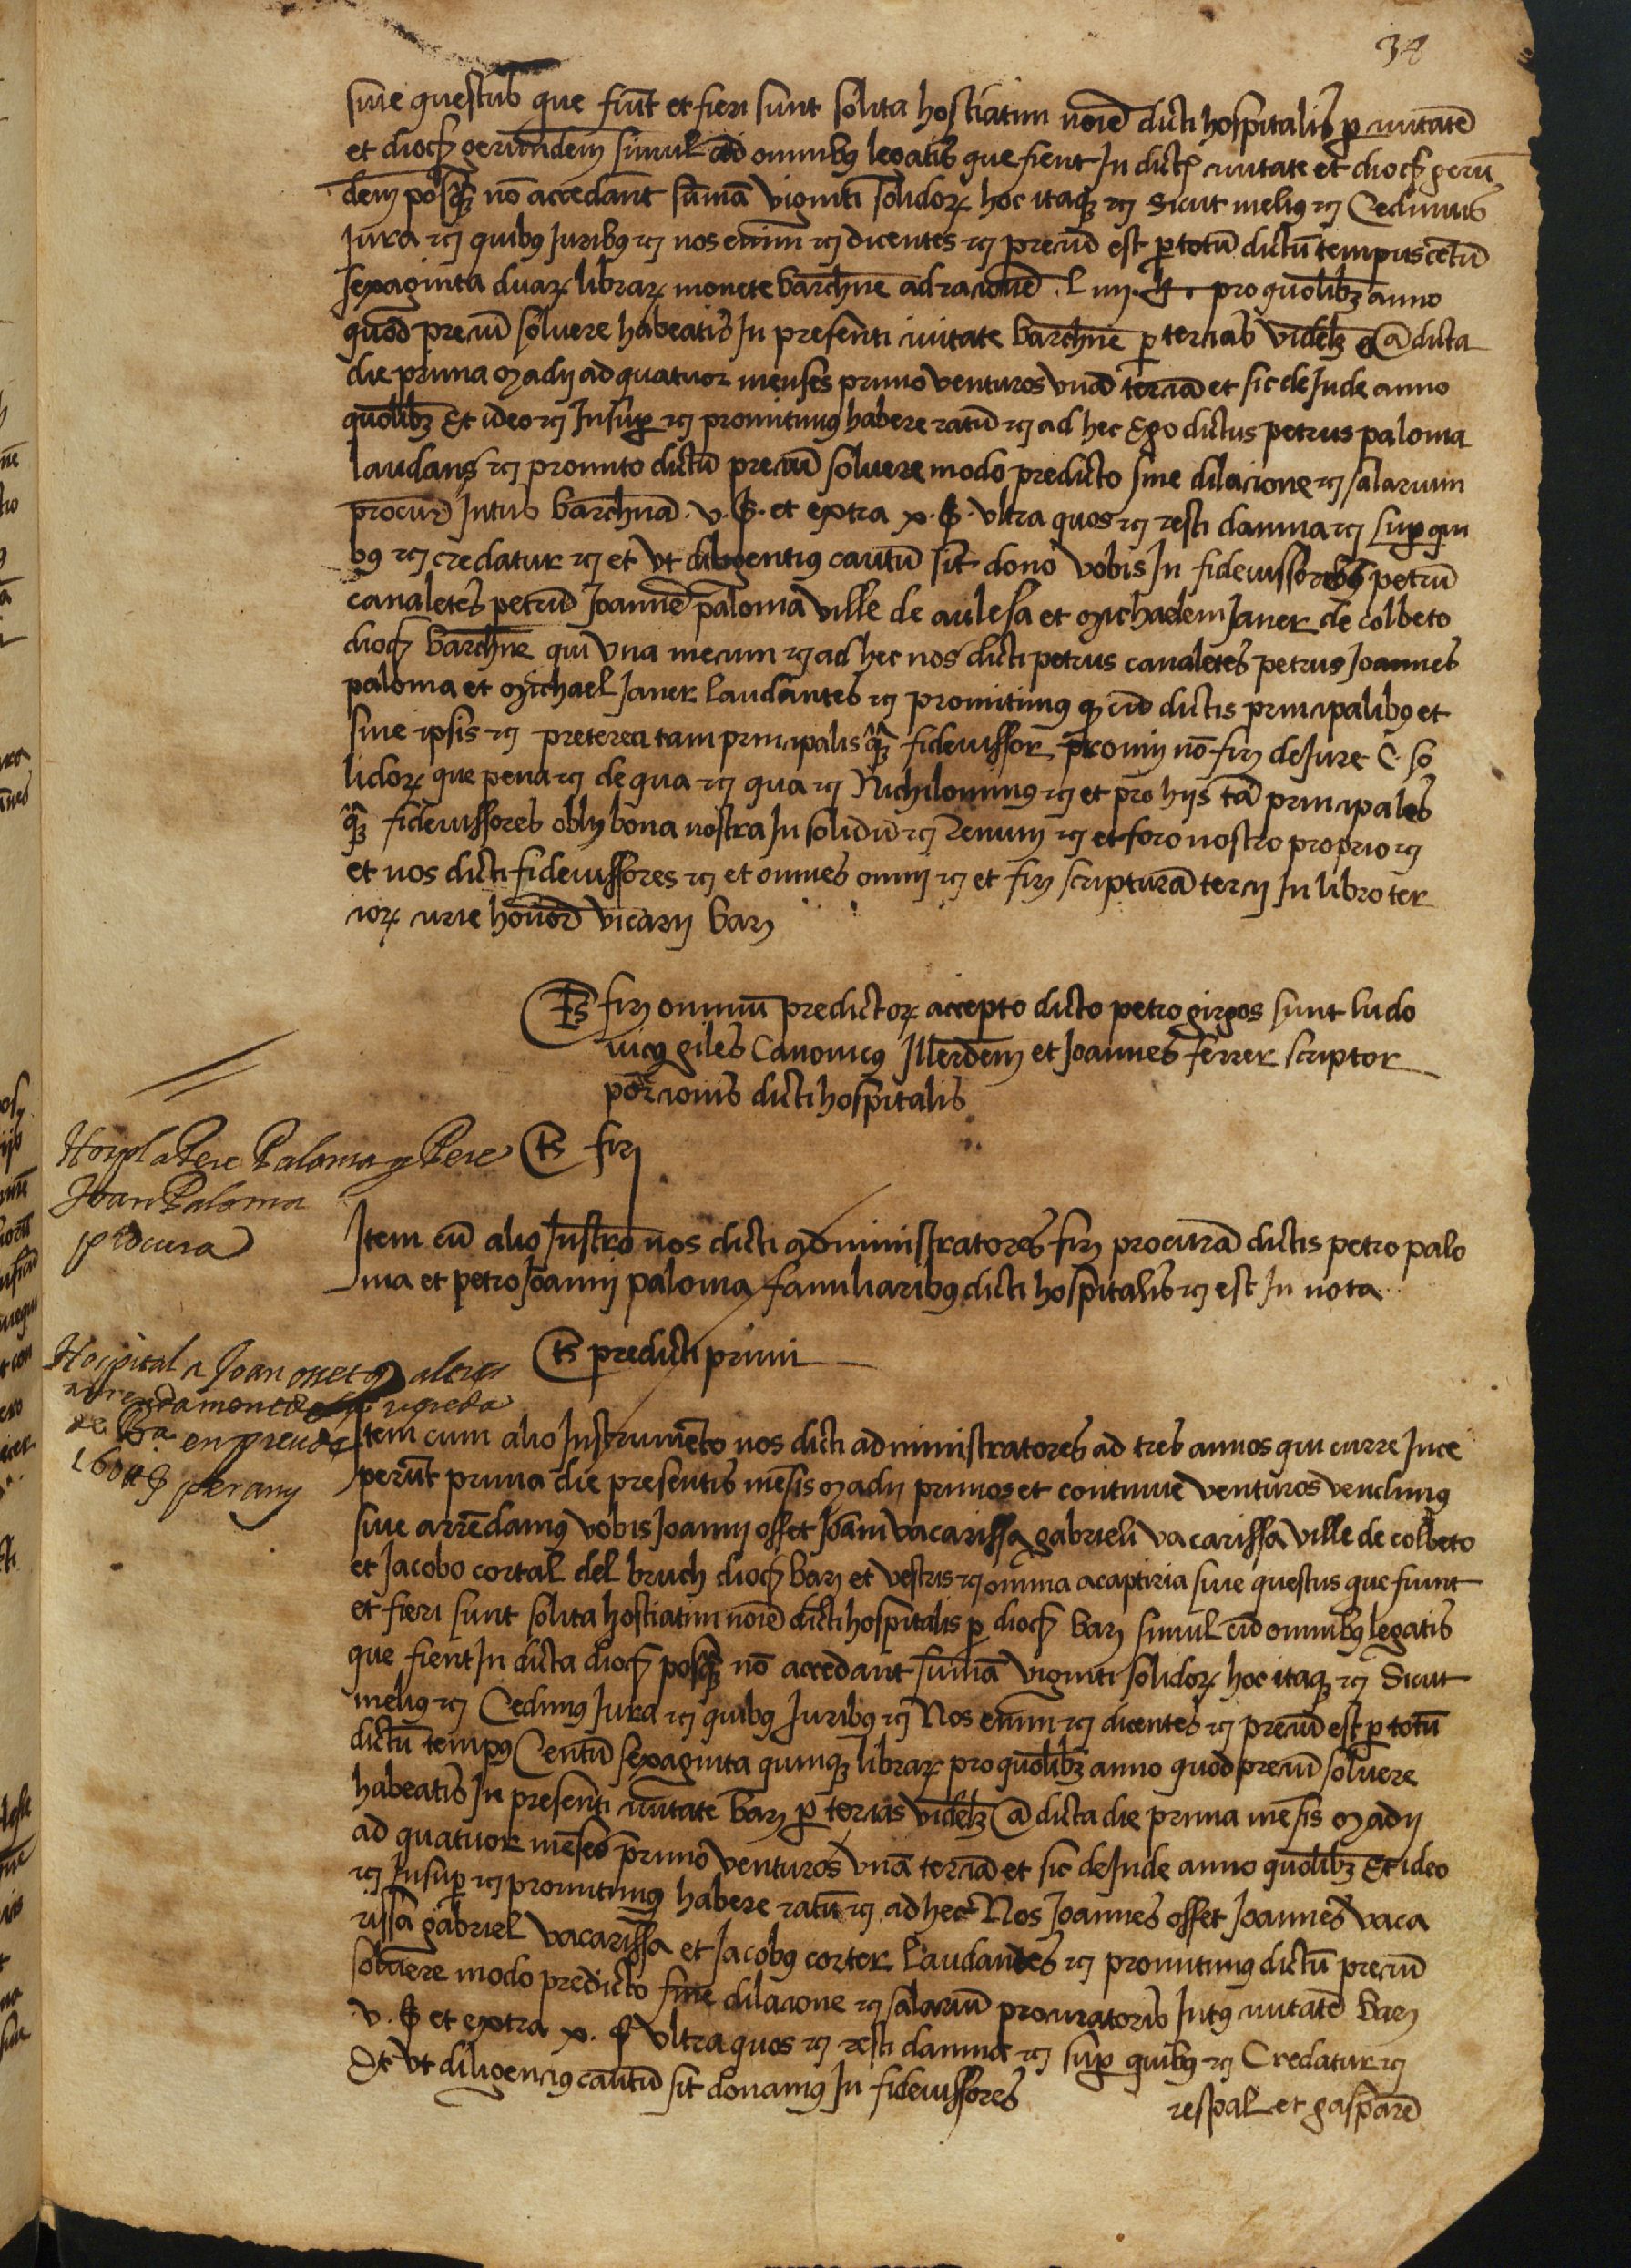 38
sive questus que fiut et fieri sunt solita hostiatim noie dicti hospitalis p civitate
et dioc gerundem simul cu omnibus legatis que fient In dict civitate et dioc gerun
dem posq no accedant suma viginti solidor hoc itaq rcj Sicut melius rcj Cedimus
Jura rcj quibus Juribus rcj nos enim rcj dicentes rcj preciu est p totu dictu tempus cetu
sexaginta duar librar monete barchne ad racione . L iiij . pro quolibz anno
quod preciu soluere habeatis In presenti civitate barchne p tercias videlz a dicta
die prima madij ad quatuor menses primo venturos una tercia et sic deInde anno
quolibz Et ideo rcj Insup rcj promitimus habere ratu rcj ad hec Ego dictus petrus paloma
laudans rcj promito dictu preciu soluere modo predicto sine dilacione rcj salarium
procur Intus barchna . v . s . et extra x . s . ultra quos rcj resti damna rcj sup qui
bus rcj credatur rcj et ut diligentius cautu sit dono vobis In fideiussores petru
canaletes petru Joanne paloma ville de aulesa et michaelem Janer de colbeto
dioc barchne qui una mecum rcj ad hec nos dicti petrus canaletes petrus Joannes
paloma et michael Janer laudantes rcj promitimus q cu dictis principalibus et
sine ipsis rcj preterea tam principalis q fideiussor promij no firj deJure C so
lidor que pena rcj de qua rcj qua rcj Nichilominus rcj et pro hijs ta principales
q fideiussores oblij bona nostra In solidu rcj Renunj rcj et foro nostro proprio rcj
et nos dicti fideiussores rcj et omnes omnj rcj et firj scriptura tercij In libro ter
cior curie honor vicarij barj
Ts firj omniu predictor accepto dicto petro girgos sunt ludo
vicus giles Canonicus Illerdem et Joannes ferrer scriptor
porcionis dicti hospitalis
Hospl a Pere Paloma y Pere
Joan Paloma
procura
Ts firj
Item cu alio Instro nos dicti administratores firj procura dictis petro palo
ma et petro Joannj paloma familiaribus dicti hospitalis rcj est In nota
Ts predicti primi
Hospital a Joan osset y altres
arrendament
de Ba en preu de
160 per any
Item cum alio Instrumeto nos dicti administratores ad tres annos qui curre Ince
perut prima die presentis mesis madij primos et continue venturos vendimus
sive arrendamus vobis Joannj osset Joani vacarissa gabrieli vacarissa ville de colbeto
et Jacobo cortal del bruch dioc barj et vestris rcj omnia acaptiria sive questus que fiunt
et fieri sunt solita hostiatim noie dicti hospitalis p dioc barj simul cu omnibus legatis
que fient In dicta dioc posq no accedant suma viginti solidor hoc itaq rcj Sicut
melius rcj Cedimus Jura rcj quibus Juribus rcj Nos enim rcj dicentes rcj preciu est p totu
dictu tempus Centu sexaginta quinq librar pro quolibz anno quod preciu soluere
habeatis In presenti civitate barj p tercias videlz a dicta die prima mesis madij
ad quatuor meses primo venturos una tercia et sic deInde anno quolibz Et ideo
rcj Insup rcj promitimus habere ratu rcj ad hec Nos Joannes osset Joannes vaca
rissa gabriel vacarissa et Jacobus corter Laudandes rcj promitimus dictu preciu
soluere modo predicto sine dilacione rcj salariu procuratoris Intus civitate barj
v . s et extra x . s ultra quos rcj resti damna rcj sup quibus rcj Credatur rcj
Et ut diligencius cautu sit donamus In fideiussores
respal et gaspare